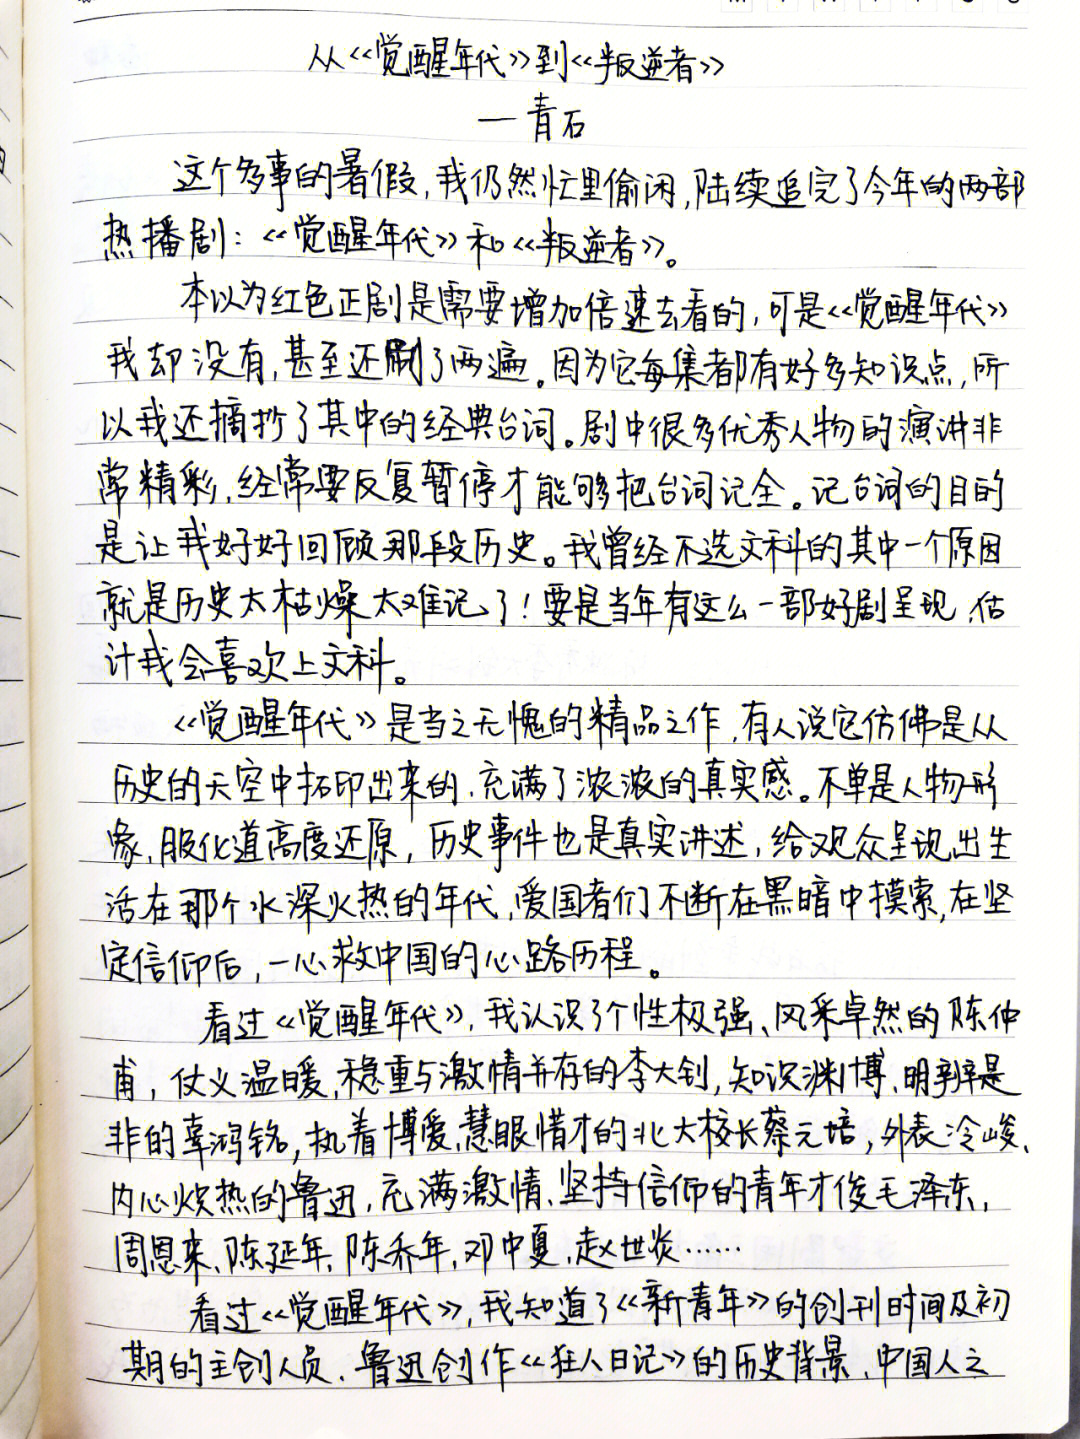 从《觉醒年代》到《叛逆者》
—青石
这个多事的暑假,我仍然忙里偷闲,陆续追完了今年的两部
热播剧:《觉醒年代》和《叛逆者》。
本以为红色正剧是需要增加倍速去看的,可是《觉醒年代》
我却没有,甚至还刷了两遍。因为它每集都有好多知识点,所
以我还摘抄了其中的经典台词。剧中很多优秀人物的演讲非
常精彩,经常要反复暂停才能够把台词记全。记台词的目的
是让我好好回顾那段历史。我曾经不选文科的其中一个原因
就是历史太枯燥太难记了!要是当年有这么一部好剧呈现,估
计我会喜欢上文科。
《觉醒年代》是当之无愧的精品之作,有人说它仿佛是从
历史的天空中拓印出来的,充满了浓浓的真实感。不单是人物形
象,服化道高度还原,历史事件也是真实讲述,给观众呈现出生
活在那个水深火热的年代,爱国者们不断在黑暗中摸索,在坚
定信仰后,一心救中国的心路历程。
看过《觉醒年代》,我认识了个性极强、风采卓然的陈仲
甫,仗义温暖,稳重与激情并存的李大钊,知识渊博、明辨是
非的辜鸿铭,执着博爱,慧眼惜才的北大校长蔡元培,外表冷峻、
内心炽热的鲁迅,充满激情、坚持信仰的青年才俊毛泽东,
周恩来,陈延年,陈乔年,邓中夏,赵世炎……
看过《觉醒年代》,我知道了《新青年》的创刊时间及初
期的主创人员、鲁迅创作《狂人日记》的历史背景、中国人之